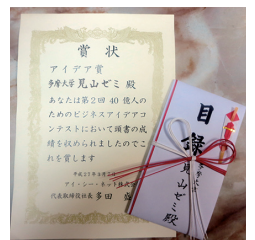 賞状
アイデア賞
多摩大学 見山ゼミ 殿
あなたは第2回40億人の
ためのビジネスアイデアコ
ンテストにおいて頭書の成
績を収められましたのでこ
れを賞します
アイ・シー・ネット株式会
代表取締役社長 多田 盛
目録
多摩大学
見山ゼミ殿